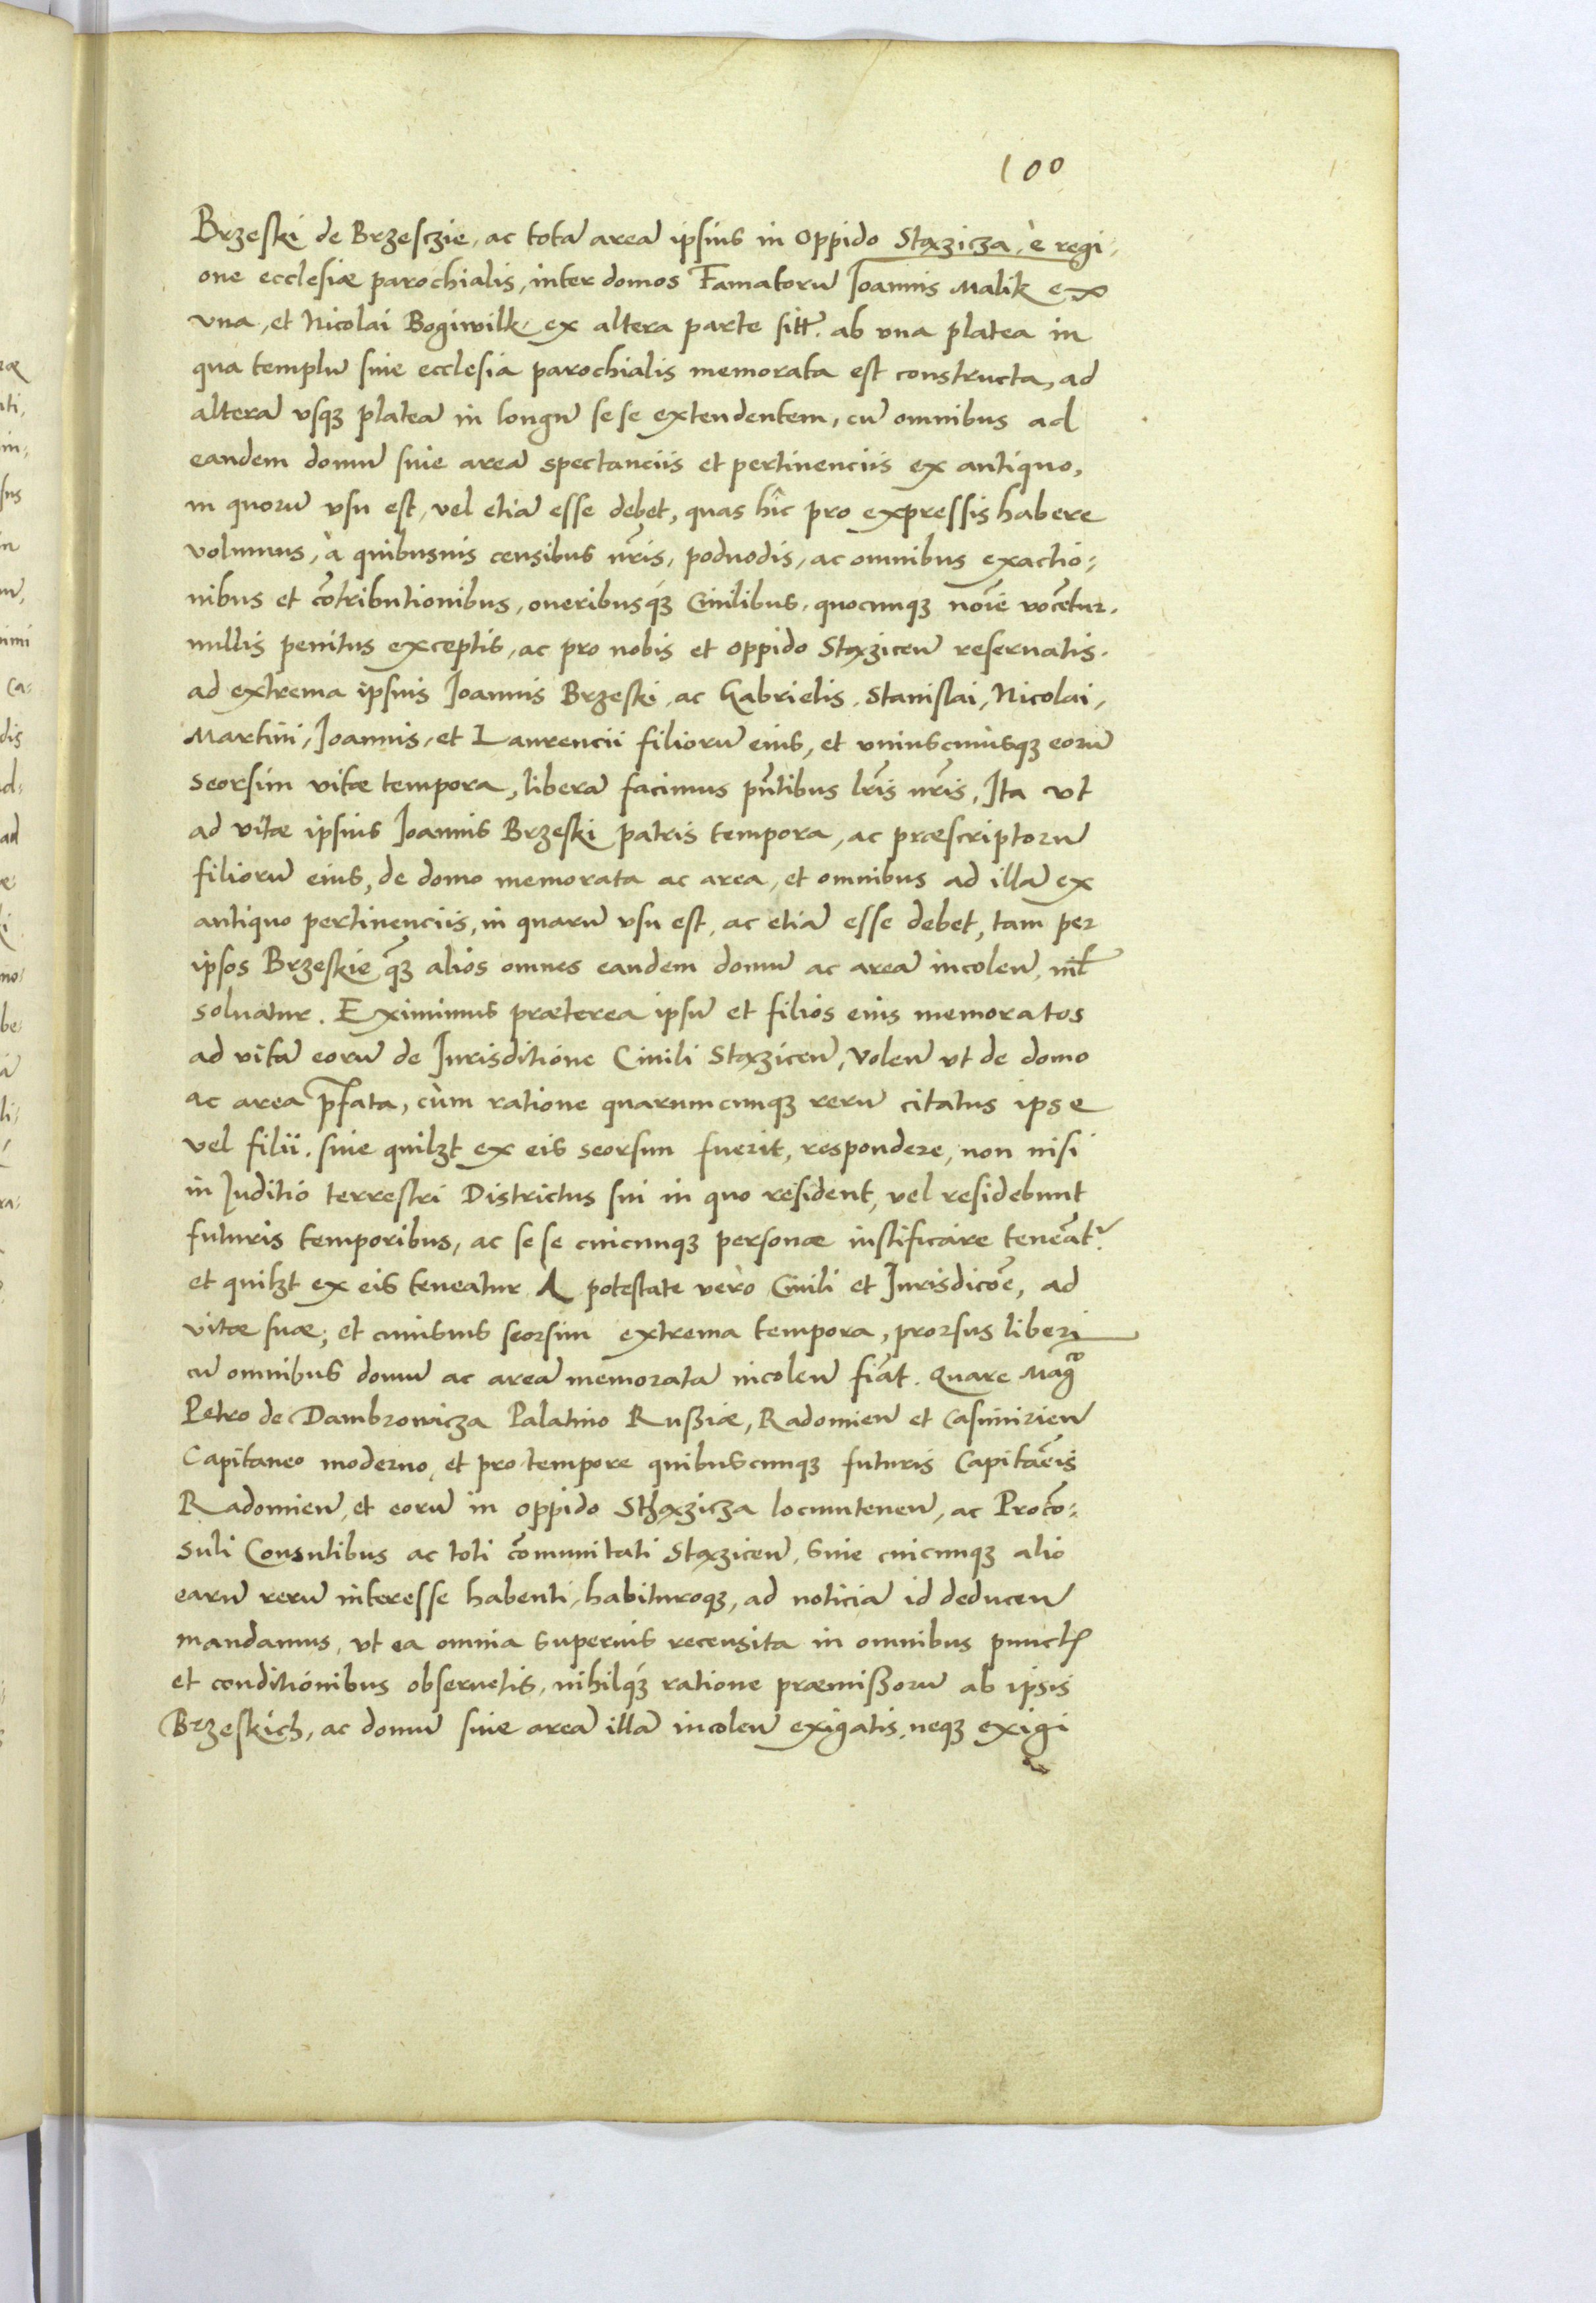 100
Brzeski de Brzesczie, ac totā areā ipsius in Oppido Stązicza, è regi-
one ecclesiæ parochialis, inter domos Famatorū Ioannis Malik ex
vna, et Nicolai Bogiwilk, ex altera parte sitt. ab vna platea in
qua templū siue ecclesia parochialis memorata est constructa, ad
alterā vsqꝫ plateā in longū sese extendentem, cū omnibus ad
eandem domū siue areā spectanciis et pertinenciis ex antiquo,
in quorū vsu est, vel etiā esse debet, quas hîc pro expressis habere
volumus, à quibusuis censibus nr̄is, poduodis, ac omnibus exactio:
nibus et cōtributionibus, oneribusqꝫ Ciuilibus, quocunqꝫ noīe vocētur.
nullis penitus exceptis, ac pro nobis et oppido Stązicen̄ reseruatis.
ad extrema ipsius Ioannis Brzeski, ac Gabrielis, Stanislai, Nicolai,
Martini, Ioannis, et Laurencii filiorū eius, et vniuscuiusqꝫ eorū
seorsim vitæ tempora, liberā facimus pn̄tibus lr̄is nr̄is, Ita vt
ad vitæ ipsius Ioannis Brzeski patris tempora, ac præscriptorū
filiorū eius, de domo memorata ac area, et omnibus ad illā ex
antiquo pertinenciis, in quarū vsu est, ac etiā esse debet, tam per
ipsos Brzeskie, qꝫ alios omnes eandem domū ac areā incolen̄, nil
soluatur. Eximimus præterea ipsū et filios eius memoratos
ad vitā eorū de Iurisditione Ciuili Stązicen̄, Volen̄ vt de domo
ac area p̄fata, cùm ratione quarumcunqꝫ rerū citatus ipse
vel filii. siue quilꝫt ex eis seorsim fuerit, respondere, non nisi
in Iuditio terrestri Districtus sui in quo resident, vel residebunt
futuris temporibus, ac sese cuicunqꝫ personæ iustificare teneāt.
et quilꝫt ex eis teneatur A potestate verò Ciuili et Iurisdicōe, ad
vitæ suæ, et cuiusuis seorsim extrema tempora, prorsus liberi
cū omnibus domū ac areā memoratā incolen̄ fiāt. Quare Mag͞co
Petro de Dambrowicza Palatino Rußiæ, Radomien̄ et Casimirien̄
Capitaneo moderno, et pro tempore quibuscunqꝫ futuris Capitāeis
Radomien̄, et eorū in oppido Sthązicza locumtenen̄, ac Procō:
suli Consulibus ac toti cōmunitati Stązicen̄, siue cuicunqꝫ alio
earū rerū interesse habenti, habituroqꝫ, ad noticiā id deducen̄
mandamus, vt ea omnia superius recensita in omnibus punctꝭ
et conditionibus obseruetis, nihilqꝫ ratione præmißorū ab ipsis
Brzeskich, ac domū siue areā illā incolen̄ exigatis, neqꝫ exigi